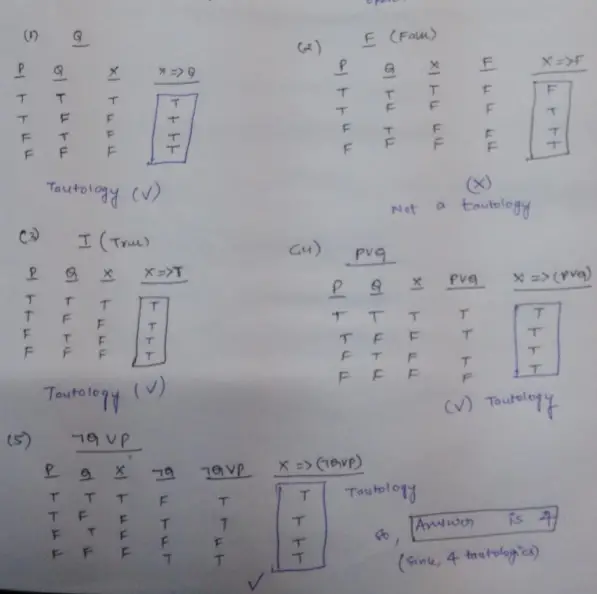 (1) Q
P Q X X=>Q
T T T T
T F F T
F T F T
F F F T
Tautology (√)
(2) F (False)
P Q X F X=>F
T T T F F
T F F F T
F T F F T
F F F F T
(X)
Not a tautology
(3) T (True)
P Q X X=>T
T T T T
T F F T
F T F T
F F F T
Tautology (√)
(4) PVQ
P Q X PVQ X=>(PVQ)
T T T T T
T F F T T
F T F T T
F F F F T
(√) Tautology
(5) ¬QVP
P Q X ¬Q ¬QVP X=>(¬QVP)
T T T F T T
T F F T T T
F T F F F T
F F F T T T
√
Tautology
So, Answer is 4
(Since, 4 tautologies)